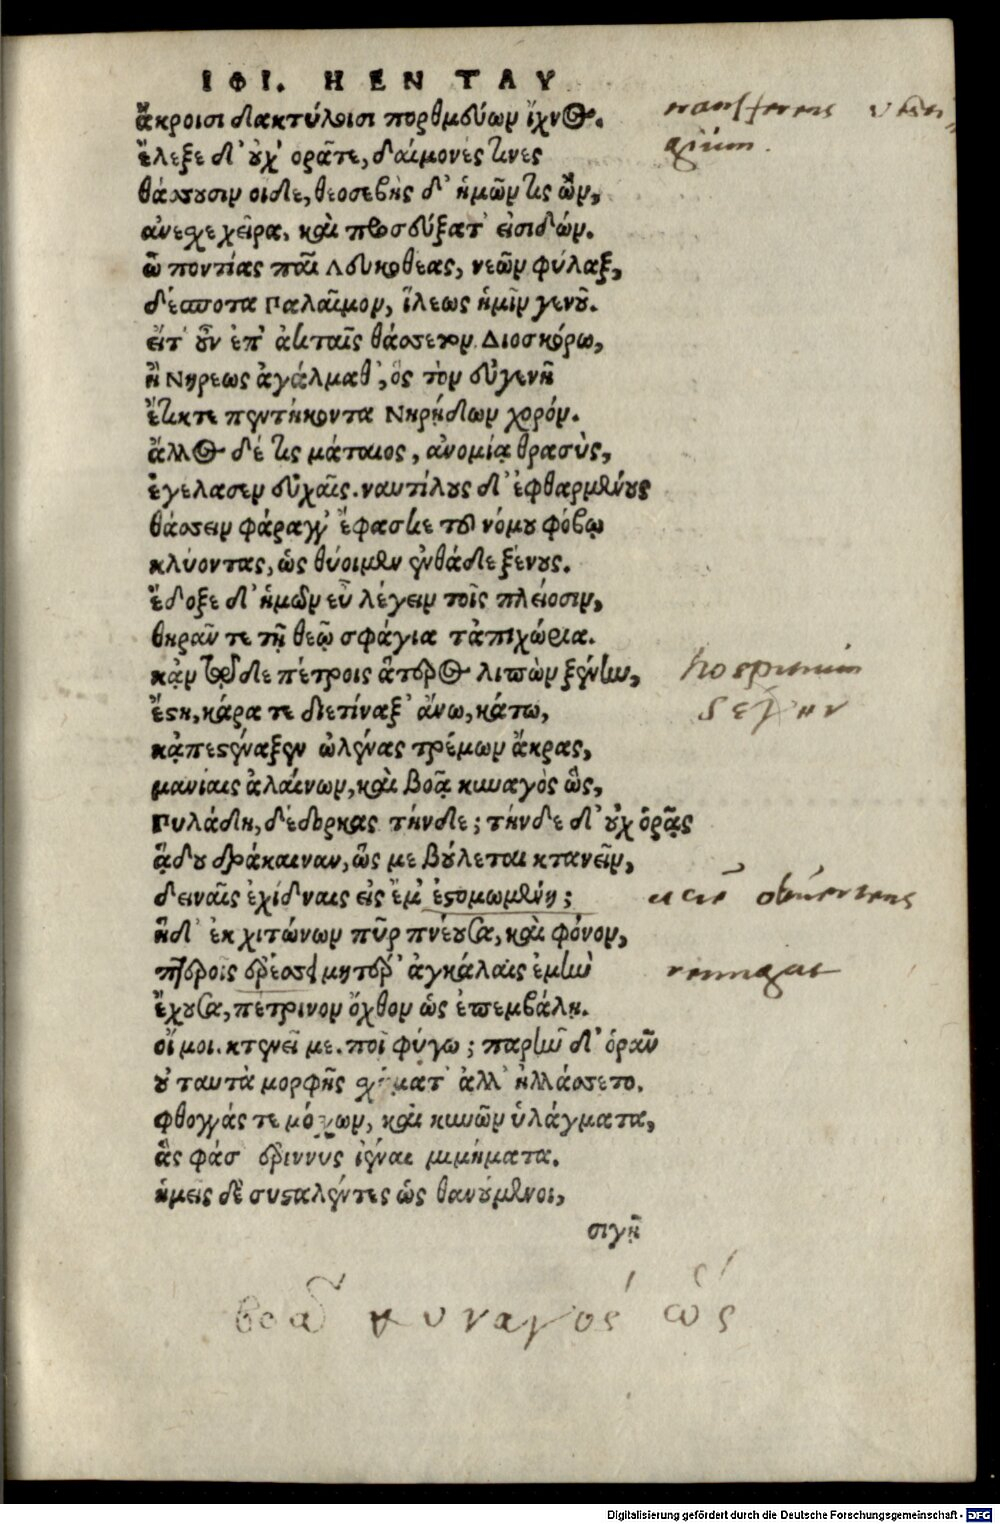 ΙΦΙ. Η ΕΝ ΤΑΥ
ἄκροισι δακτύλοισι πορθμεύων ἴχνος.
transferens vesti-
ἔλεξε δ' οὐχ ὁρᾶτε, δαίμονές τινες
gium.
θάσσουσιν οἵδε, θεοσεβὴς δ' ἡμῶν τις ὢν,
ἀνέσχε χεῖρα, καὶ προσεύξατ' εἰσιδών.
ὦ ποντίας παῖ Λευκοθέας, νεῶν φύλαξ,
δέσποτα Παλαῖμον, ἵλεως ἡμῖν γενοῦ.
εἴτ' οὖν ἐπ' ἀκταῖς θάσσετον Διοσκόρω,
ἢ Νηρέως ἀγάλμαθ', ὃς τὸν εὐγενῆ
ἔτικτε πεντήκοντα Νηρῄδων χορόν.
ἄλλος δέ τις μάταιος, ἀνομίᾳ θρασὺς,
ἐγέλασεν εὐχαῖς. ναυτίλους δ' ἐφθαρμένους
θάσσειν φάραγγ' ἔφασκε τοῦ νόμου φόβῳ
κλύοντας, ὡς θύοιμεν ἐνθάδε ξένους.
ἔδοξε δ' ἡμῶν εὖ λέγειν τοῖς πλείοσιν,
θηρᾶν τε τῇ θεῷ σφάγια τἀπιχώρια.
κᾀν τῷδε πέτροις ἅτερος λιπὼν ξένην,
hospitium
ἔστη, κάρα τε διετίναξ' ἄνω, κάτω,
κᾀπεστέναξεν ὠλένας τρέμων ἄκρας,
μανίαις ἀλαίνων, καὶ βοᾷ κυναγὸς ὣς,
Πυλάδη, δέδορκας τήνδε; τήνδε δ' οὐχ ὁρᾷς
ᾅδου δράκαιναν, ὥς με βούλεται κτανεῖν,
δειναῖς ἐχίδναις εἰς ἔμ' ἐστομωμένη;
ἡ δ' ἐκ χιτώνων πῦρ πνέουσα, καὶ φόνον,
πτεροῖς ἐρέσσει μητέρ' ἀγκάλαις ἐμὴν
remigat
ἔχουσα, πέτρινον ὄχθον ὡς ἐπεμβάλῃ.
οἴ μοι. κτενεῖ με. ποῖ φύγω; παρῆν δ' ὁρᾶν
οὐ ταυτὰ μορφῆς σχήματ' ἀλλ' ἠλλάσσετο.
φθογγάς τε μόσχων, καὶ κυνῶν ὑλάγματα,
ἃς φάσ' ἐριννῦς ἱέναι μιμήματα.
ἡμεῖς δὲ συσταλέντες ὡς θανούμενοι,
σιγῇ
βοᾷ κυναγός ὥς
Digitalisierung gefördert durch die Deutsche Forschungsgemeinschaft - DFG